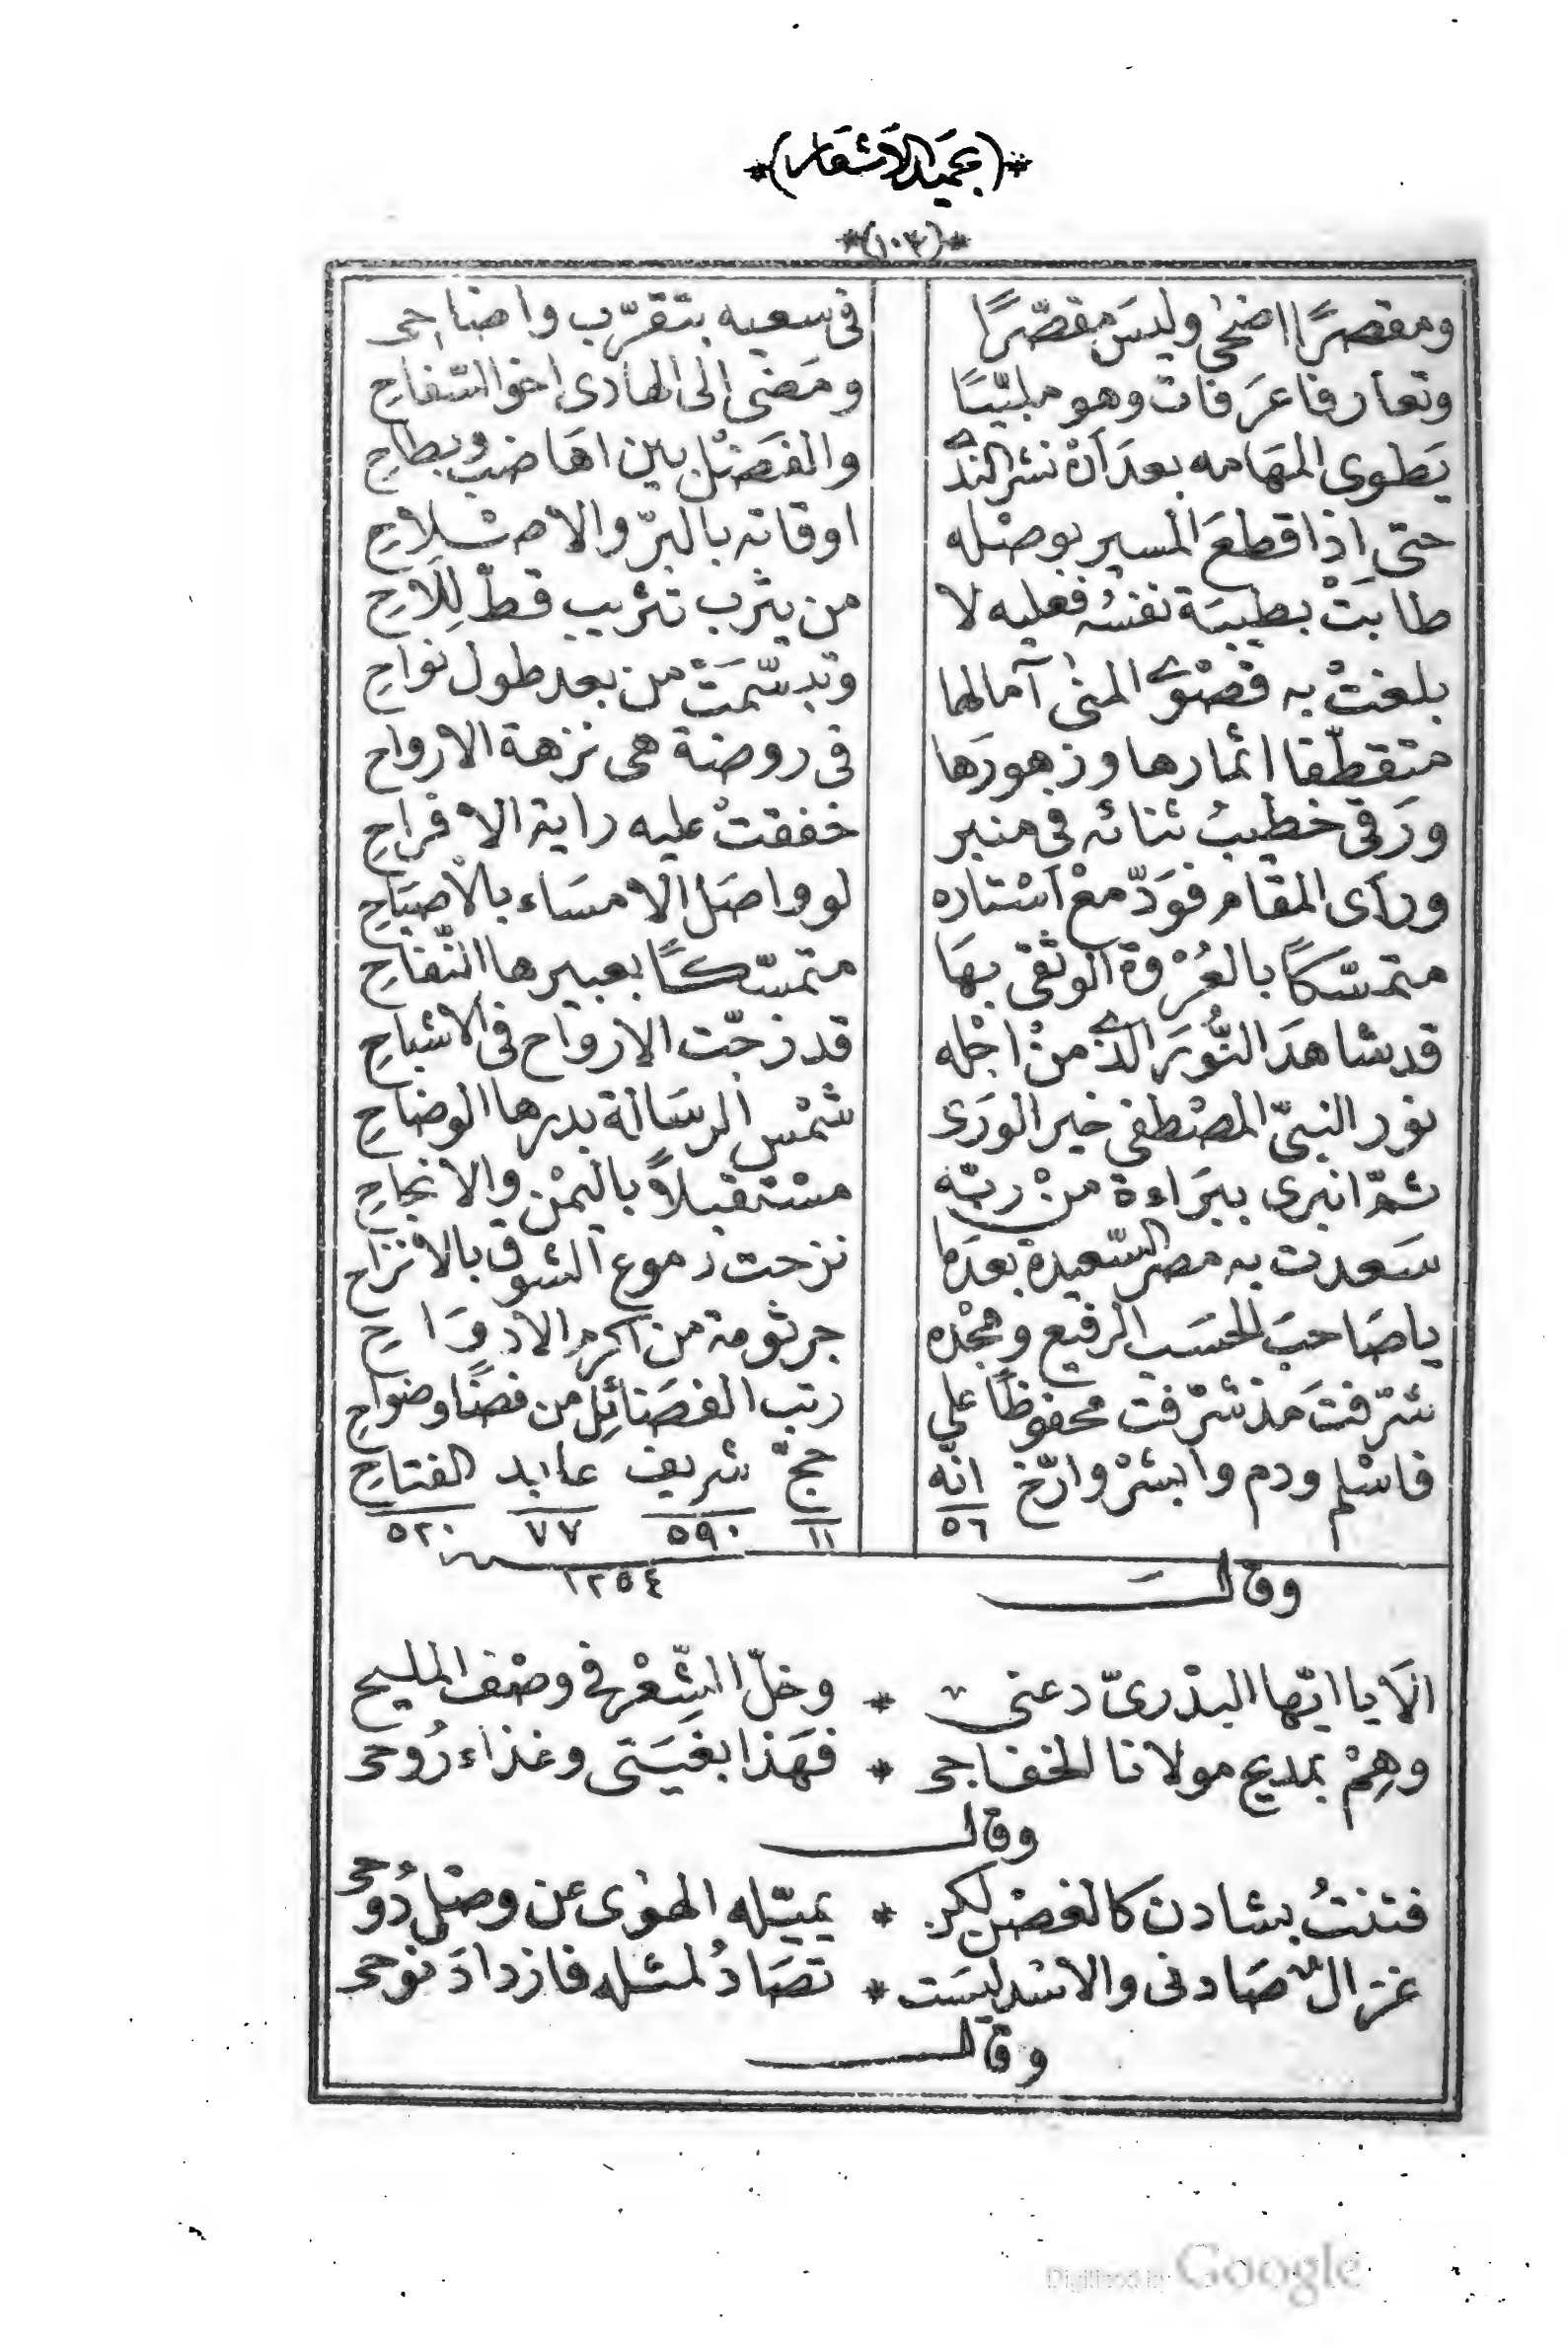 *(بحميد الاشعار)*
*(١٠٣)*
ومقصرًا اضحٰى وليسَ مقصّرًا في سعيه بتقرّب واضاحى
وتعارفا عرَفات وهو ملبّيًا ومَضٰى الى الهادى اخو السّفاحِ
يَطوى المهَامه بعدَ اَنْ نشر الندٰى والفَضْل بين اهَاضبٍ وبطاحِ
حتى اذا قطعَ المسير بوصْله اوقاته بالبرّ والاصْلاحِ
طابَتْ بطيبَة نفسُه فعليه لا من يثرب تثريب قطّ لِلَاحِ
بلغتْ به قصْوى المنٰى آمالها وتبسّمَتْ من بعد طول نواحِ
متقطّفا اثمارها وزهورَها فى روضة هى نزهة الارواحِ
ورَقى خطيبُ ثنائه فى منبر خفقتْ عليه راية الافراحِ
ورآى المقام فوَدّ معْ استاره لو واصَل الامسَاء بالاصبَاحِ
متمسّكاً بالعُرْوة الوثقى بهَا متمسّكًا بعبيرها النّفّاحِ
قد شاهدَ النُّورَ الذى منْ اجْله قد زجّت الارواح فى الاشباحِ
نور النبىّ المصْطفى خير الورَى شمْس الرسَالة بدرها الوضاحِ
ثمّ انبرى ببرَاءة منْ ربّه مسْتقبلاً باليمْن والانجاحِ
سَعدت به مصر السّعيدة بعدَما نزحت دموع الشوق بالافراحِ
ياصَاحبَ الحسَب الرفيع ومجْده جرثومة من اكرم الادوَاحِ
شرّفتَ مذ شرّفت محفوظاً على رتب الفضَائِل من فضًا وضواحِ
فاسْلم ودم وابشرْ وارّخ انّه حجّ شريف عابد الفتاحِ
٥٦ ١١ ٥٩٠ ٧٧ ٥٢٠
١٢٥٤
وقالَ
الَا يا ايّها البدْرىّ دعنى * وخلّ الشِّعْر فى وصْف المليح
وهِمْ بمديح مولانا الخفاجى * فهَذا بغيَتى وغذاء رُوحى
وقال
فتنتُ بشادن كالغصْن لكن * يميّله الهوٰى عن وصْل دُوحى
غزال صَادنى والاسْد ليسَت * تصَادُ لمثله فازدادَ نوحى
وقال
Digitized by Google